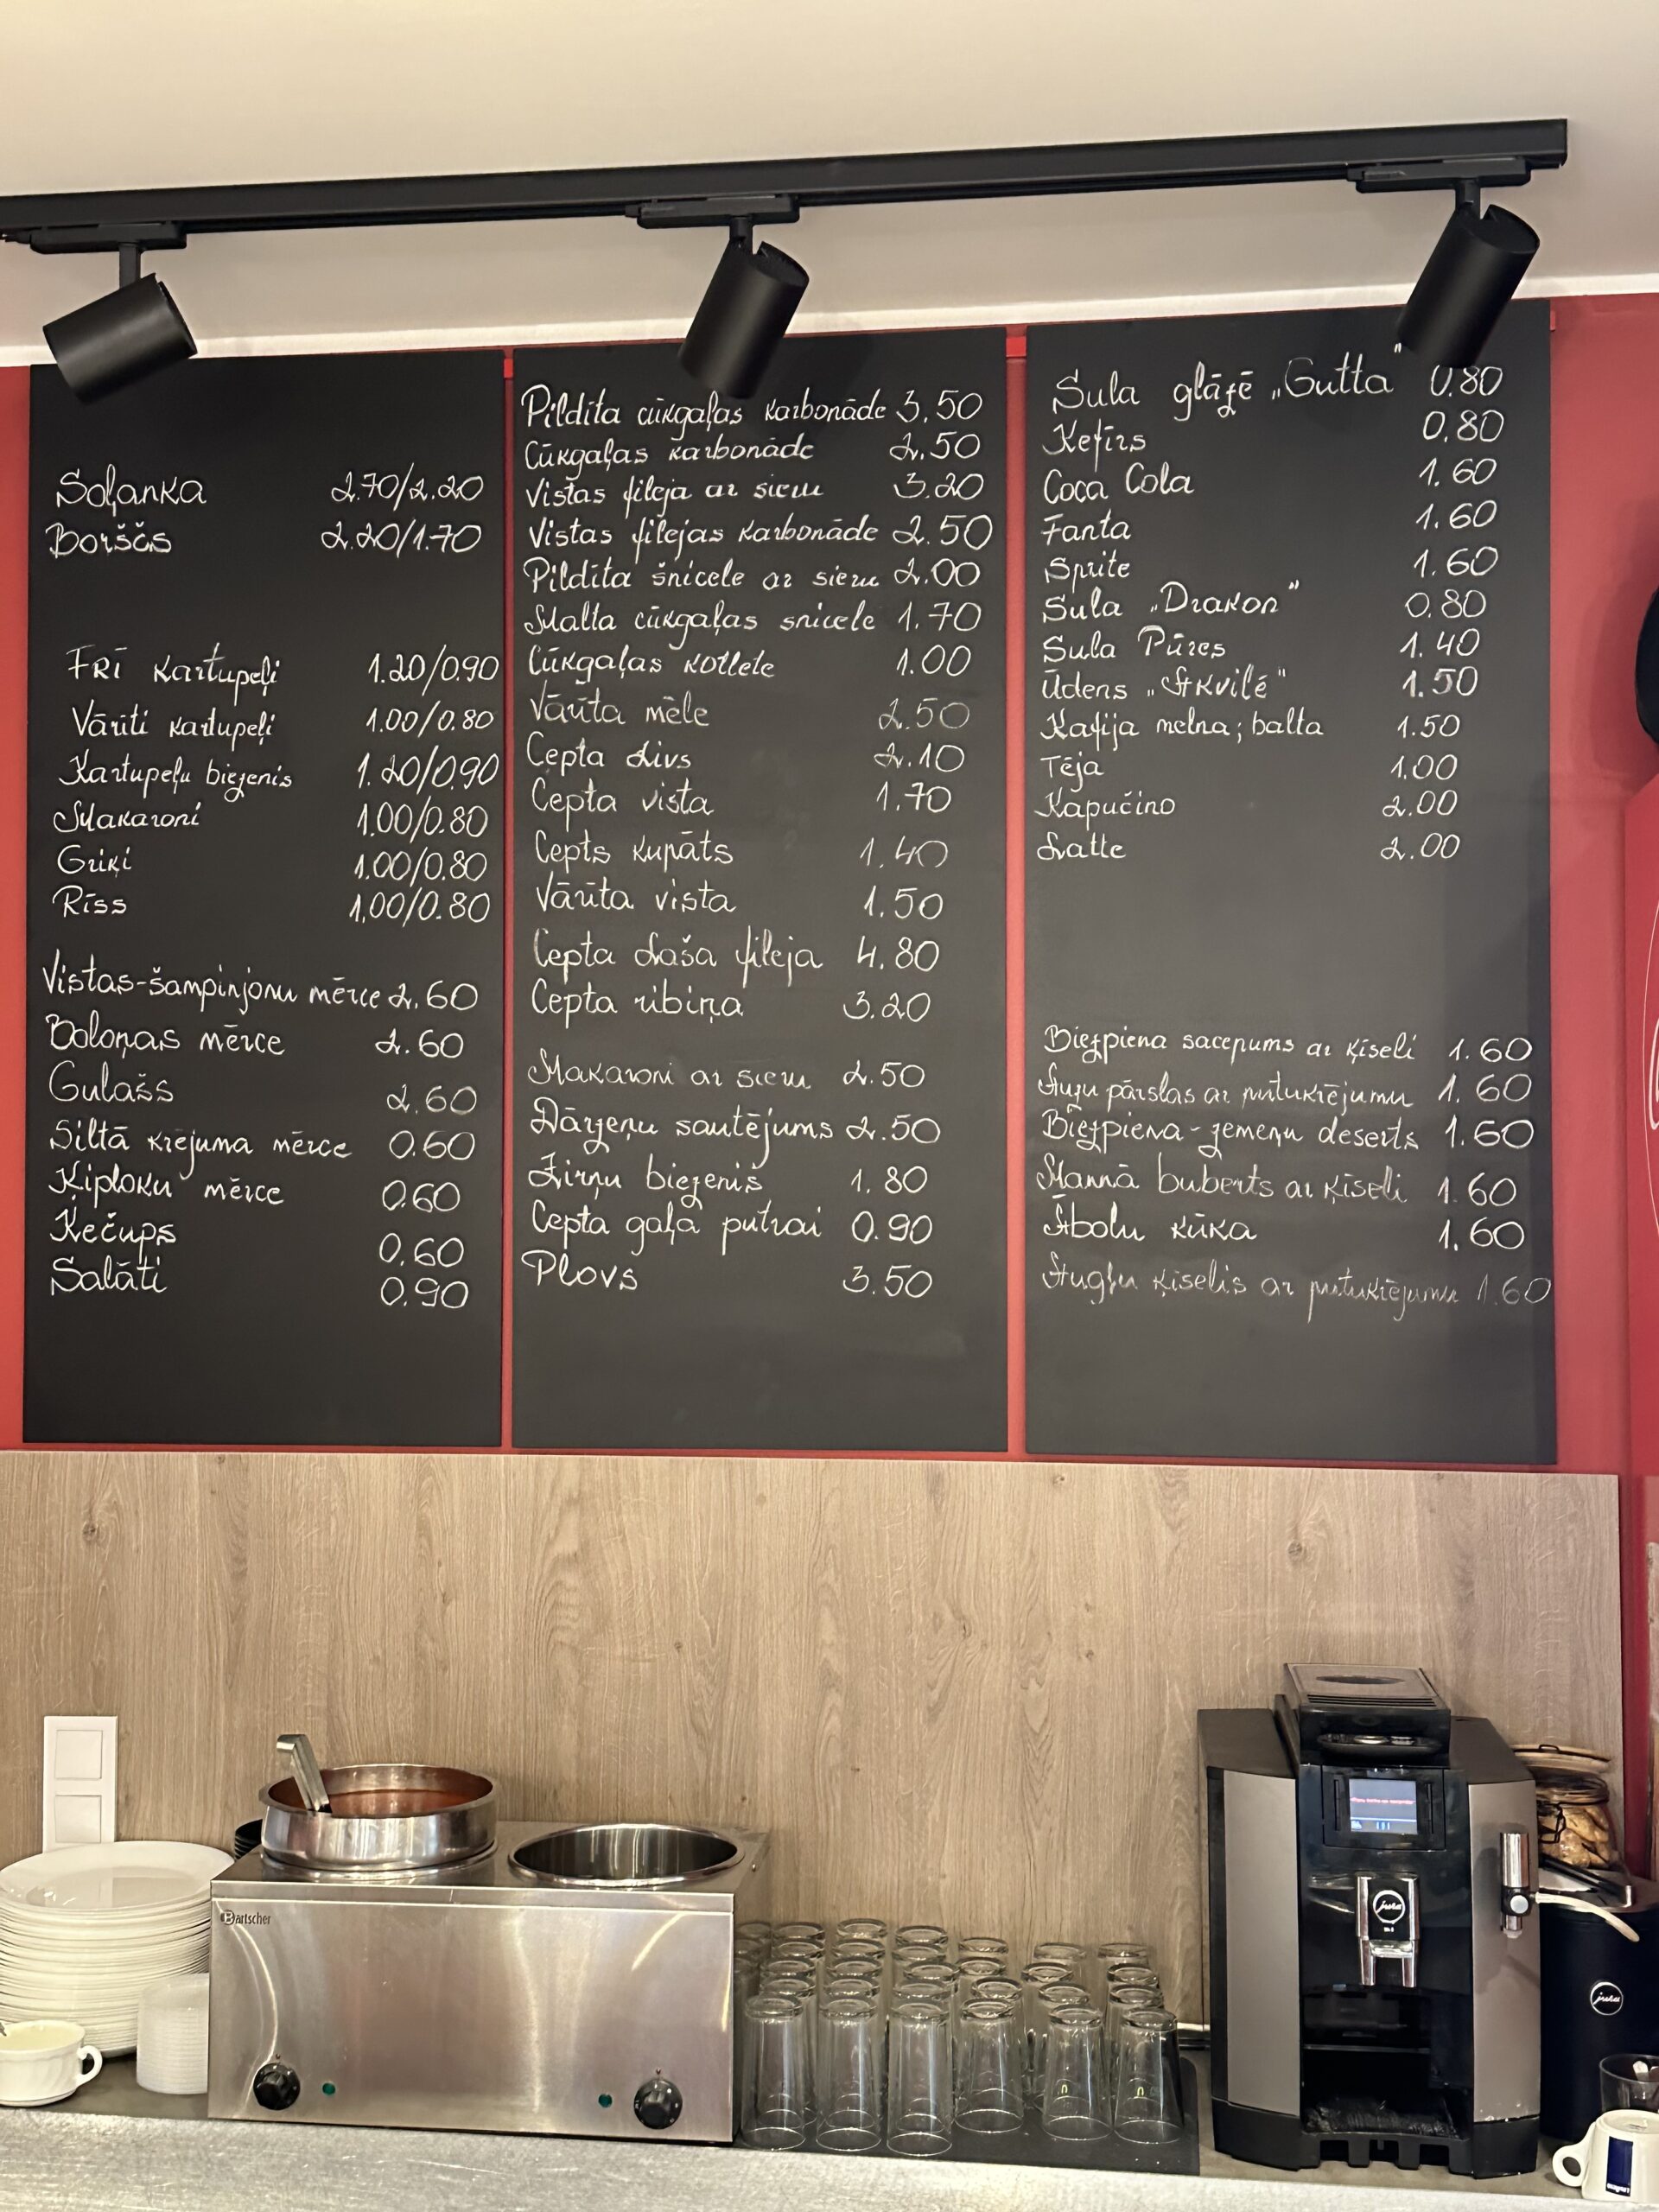 Soļanka 2.70/2.20
Borščs 2.20/1.70
FRĪ kartupeļi 1.20/0.90
Vārīti kartupeļi 1.00/0.80
Kartupeļu biezenis 1.20/0.90
Makaroni 1.00/0.80
Griķi 1.00/0.80
Rīss 1.00/0.80
Vistas-šampinjonu mērce 2.60
Boloņas mērce 2.60
Gulašs 2.60
Siltā krējuma mērce 0.60
Ķiploku mērce 0.60
Kečups 0.60
Salāti 0.90
Pildīta cūkgaļas karbonāde 3.50
Cūkgaļas karbonāde 2.50
Vistas fileja ar sieru 3.20
Vistas filejas karbonāde 2.50
Pildīta šnicele ar sieru 2.00
Malta cūkgaļas snicele 1.70
Cūkgaļas kotlete 1.00
Vārīta mēle 2.50
Cepta zivs 2.10
Cepta vista 1.70
Cepts kupāts 1.40
Vārīta vista 1.50
Cepta laša fileja 4.80
Cepta ribiņa 3.20
Makaroni ar sieru 2.50
Dārzeņu sautējums 2.50
Zirņu biezenis 1.80
Cepta gaļa putrai 0.90
Plovs 3.50
Sula glāzē „Gutta" 0.80
Kefīrs 0.80
Coca Cola 1.60
Fanta 1.60
Sprite 1.60
Sula „Drakon" 0.80
Sula Pūres 1.40
Ūdens „Akvilē" 1.50
Kafija melna; balta 1.50
Tēja 1.00
Kapučino 2.00
Latte 2.00
Biezpiena sacepums ar ķīseli 1.60
Auzu pārslas ar putukrējumu 1.60
Biezpiena-zemeņu deserts 1.60
Mannā buberts ar ķīseli 1.60
Ābolu kūka 1.60
Augļu ķīselis ar putukrējumu 1.60
Bartscher
jura
jura